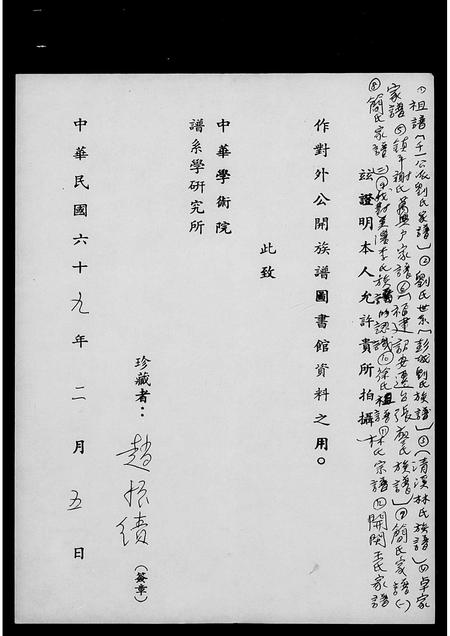 (1)祖譜(千一公派劉氏家譜)(2)劉氏世系(彭城劉氏族譜)(3)(清溪林氏族譜)(4)卓家
家譜(5)鎮平謝氏萬興戶家譜(6)(福建詔安遷台張廖氏族譜)(7)簡氏家譜(一)
(8)簡氏家譜(二)(9)我對美濃李氏族譜的認識(10)徐氏祖譜(11)林氏宗譜(12)開閩王氏家譜
茲證明本人允許貴所拍攝
作對外公開族譜圖書館資料之用。
此致
中華學術院
譜系學研究所
珍藏者：趙振績（簽章）
中華民國六十九年二月五日